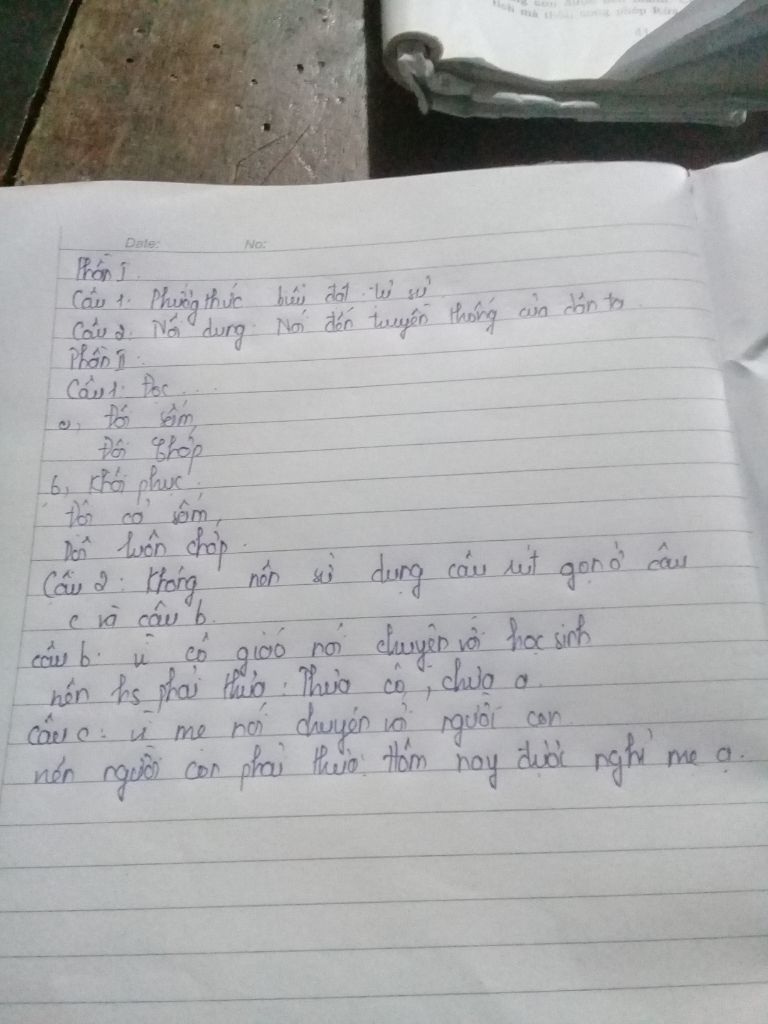 tích mà thôi
Date: No:
Phần I.
Câu 1. Phương thức biểu đạt: tự sự
Câu 2. Nội dung: Nói đến truyền thống của dân ta
Phần II:
Câu 1: Đọc ...
a, Đói sớm,
Đói
b, Khôi phục:
Đôi cỏ sớm,
luôn chớp.
Câu 2: Không nên sử dụng câu rút gọn ở câu
c và câu b.
câu b: vì cô giáo nói chuyện với học sinh
nên hs phải thưa: Thưa cô, chưa ạ.
câu c: vì mẹ nói chuyện với người con
nên người con phải thưa: Hôm nay được nghỉ mẹ ạ.